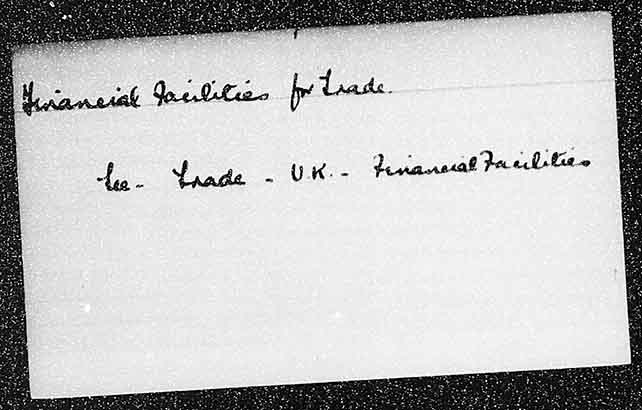 Financial Facilities for Trade.
See - Trade - U.K. - Financial Facilities